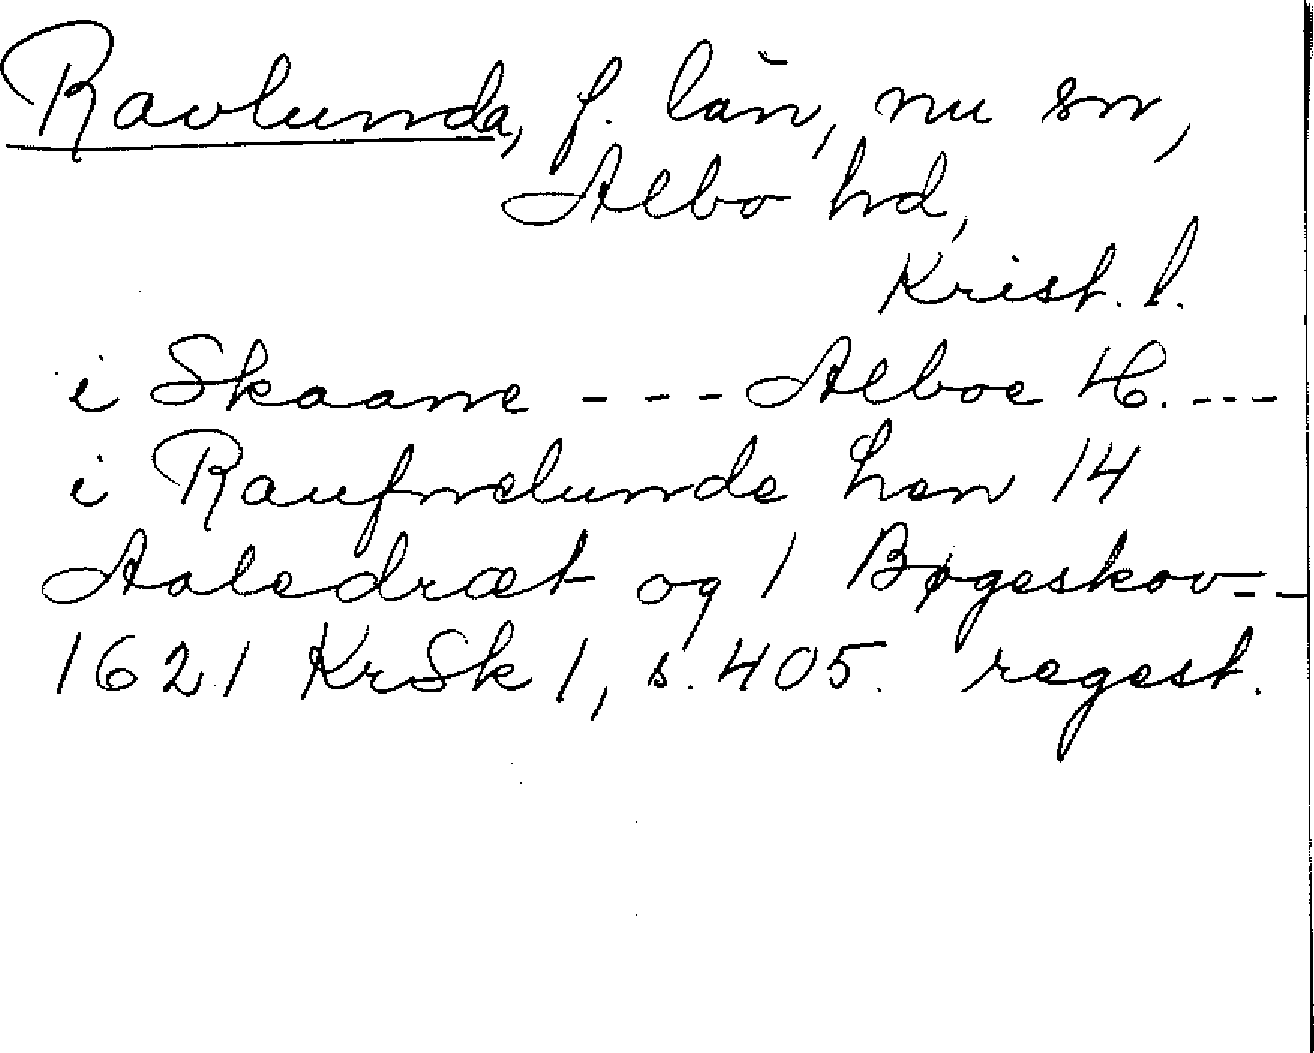 Ravlunda, f. län, nu sn,
Albo hd,
Krist. l.
i Skaane --- Alboe H. ---
i Raufnelunde Len 14
Aaledræt og 1 Bøgeskov --
1621 KrSk 1, s. 405. regest.